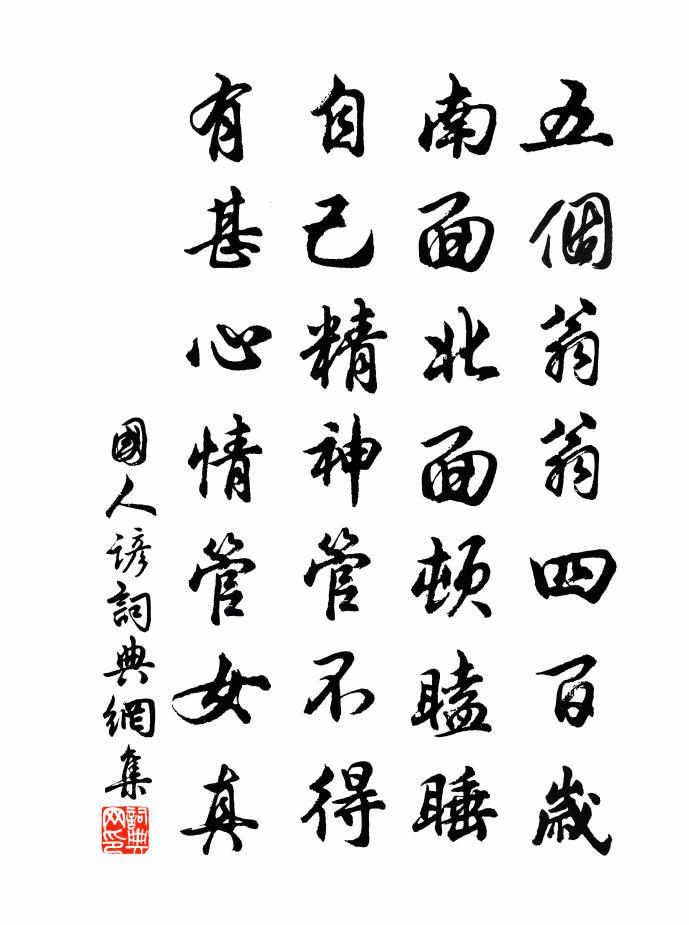 五個翁翁四百歲
南面北面頓瞌睡
自己精神管不得
有甚心情管女真
國人諺詞典網集
詞典網印